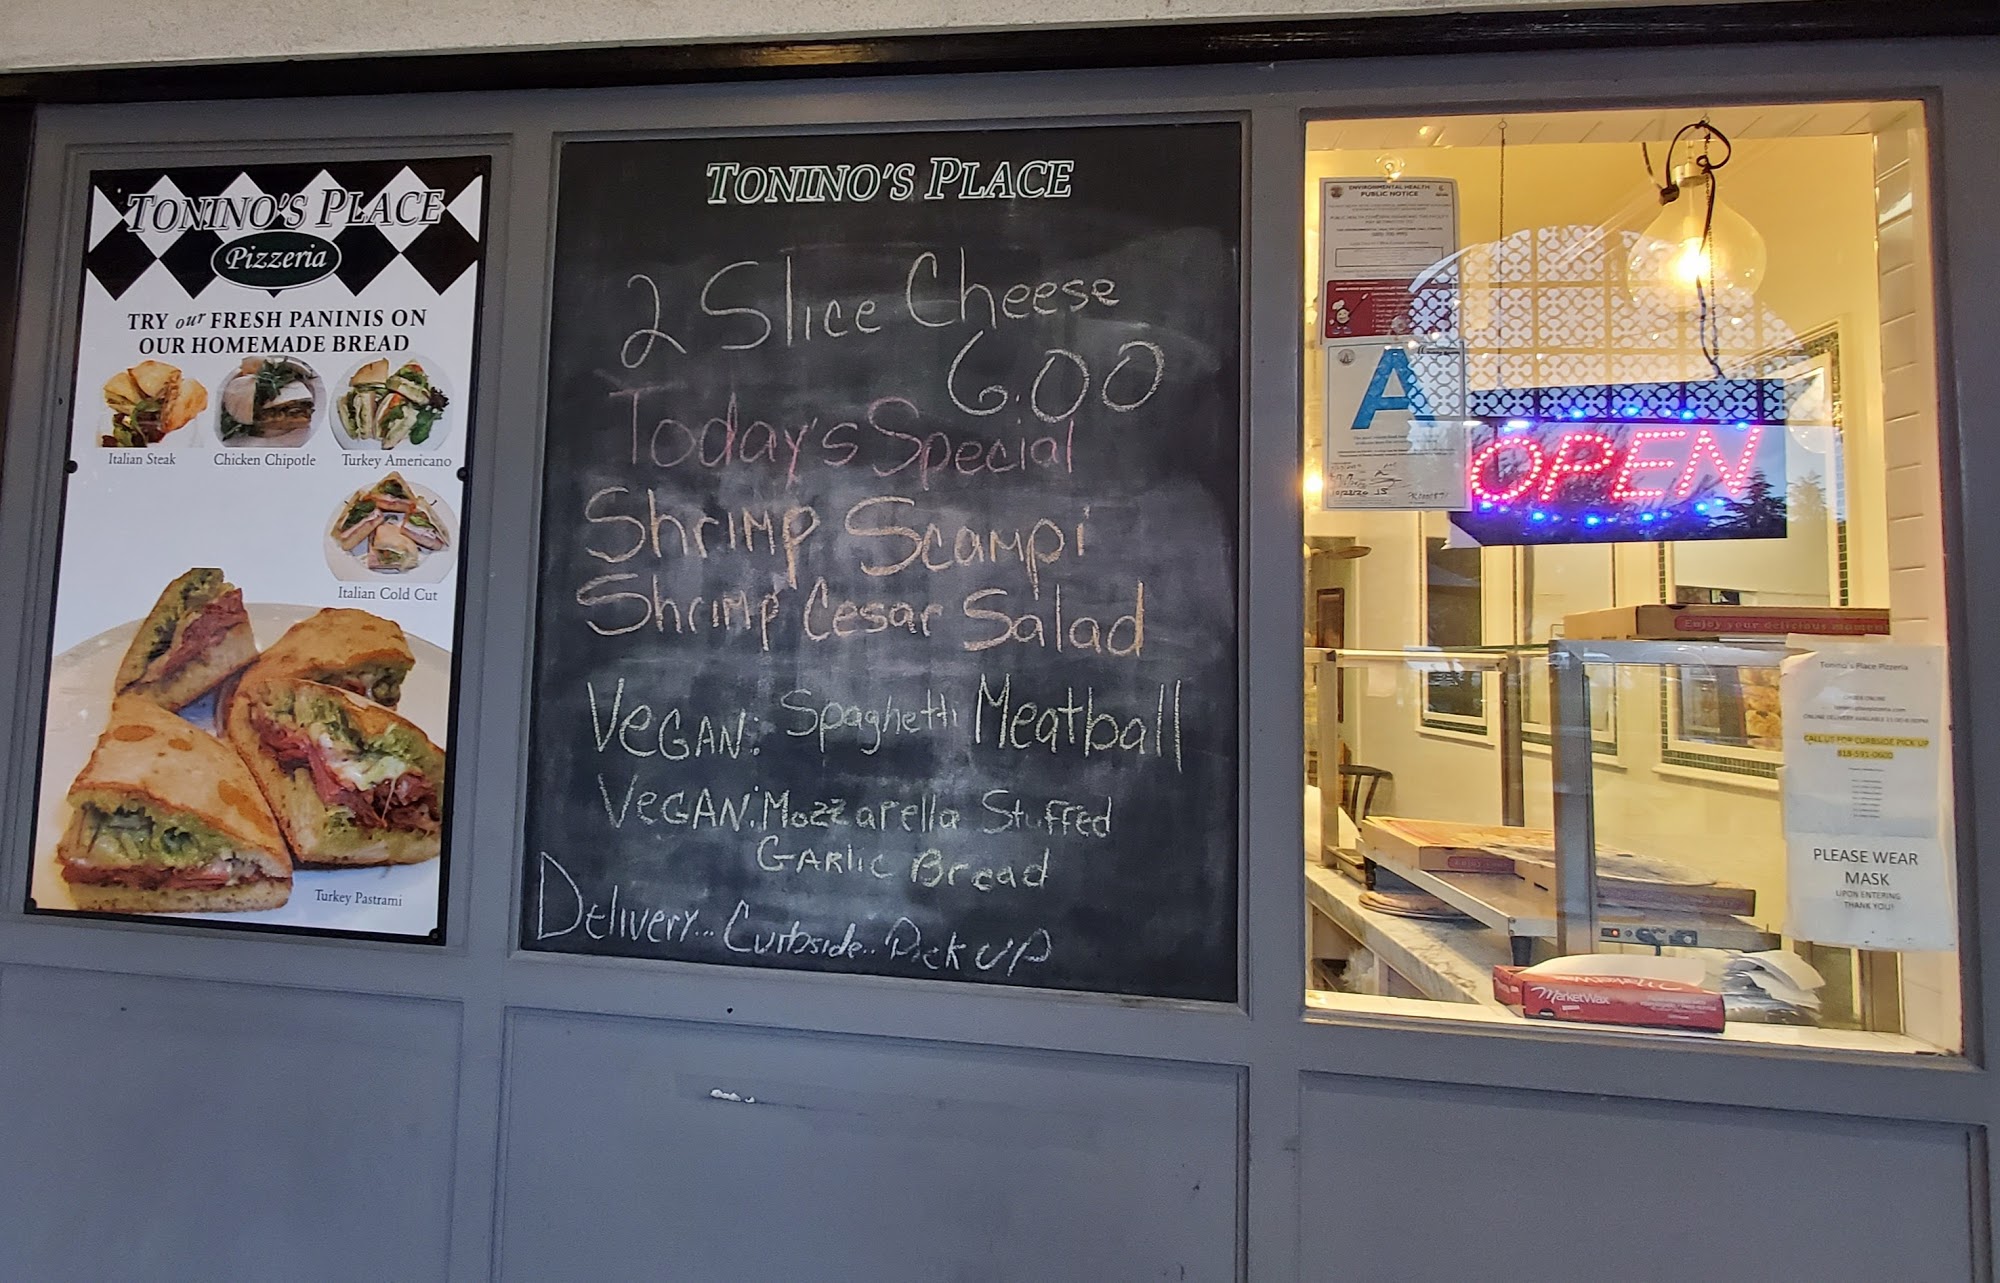 TONINO'S PLACE
Pizzeria
TRY our FRESH PANINIS ON
OUR HOMEMADE BREAD
Italian Steak
Chicken Chipotle
Turkey Americano
Italian Cold Cut
Turkey Pastrami
TONINO'S PLACE
2 Slice Cheese
6.00
Today's Special
Shrimp Scampi
Shrimp Cesar Salad
VEGAN: Spaghetti Meatball
VEGAN: Mozzarella Stuffed
GARLIC Bread
Delivery... Curbside.. Pick UP
ENVIRONMENTAL HEALTH
PUBLIC NOTICE
A
OPEN
Enjoy your delicious moment
Tonino's Place Pizzeria
ORDER ONLINE
CALL US FOR CURBSIDE PICK UP
818-591-0600
PLEASE WEAR
MASK
UPON ENTERING
THANK YOU!
MarketWax